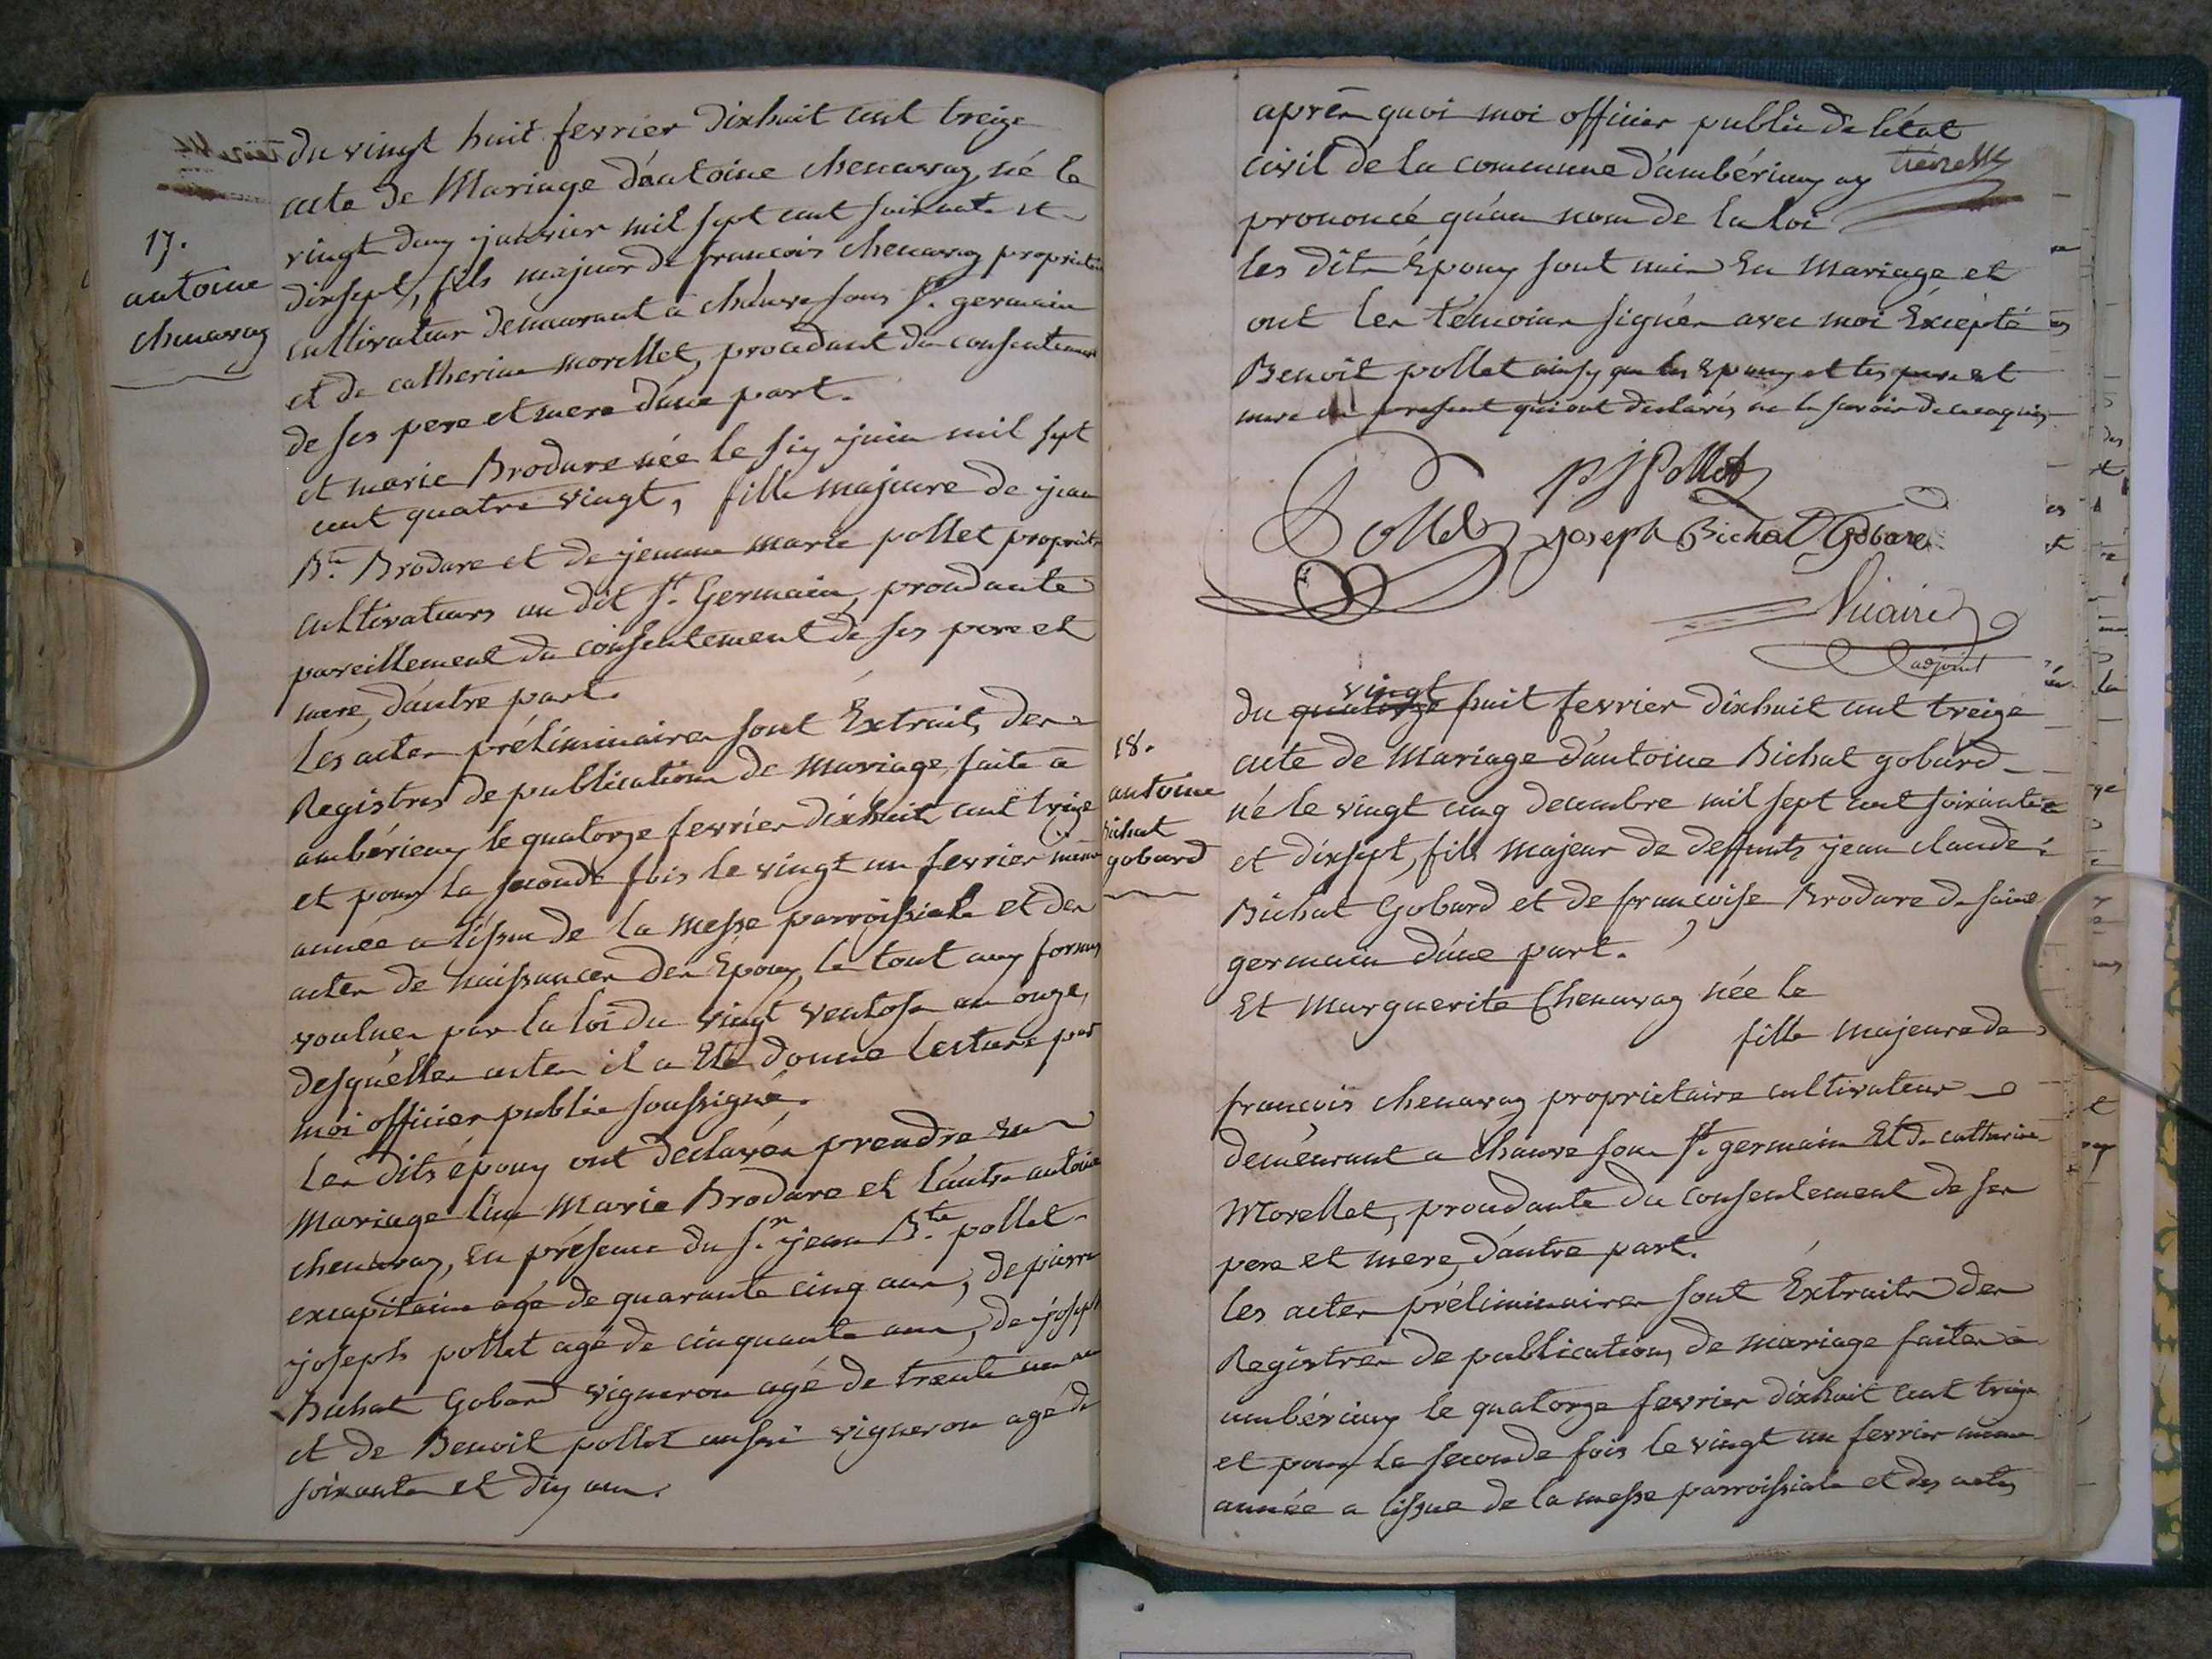 17.
antoine
chenavaz
du vingt huit fevrier dixhuit cent treize
acte de Mariage d'antoine chenavaz, né le
vingt deux janvier mil sept cent soixante et
dixsept, fils majeur de francois chenavaz proprietaire
cultivateur demeurant à chauvre sous St. germain
et de catherine morellet, procedant du consentement
de ses pere et mere d'une part.
et marie Brodure née le six juin mil sept
cent quatre vingt, fille majeure de jean
Bte. Brodure et de jeanne marie pollet propriétr
cultivateurs au dit St. Germain, procedante
pareillement du consentement de ses pere et
mere, d'autre part.
Les actes préliminaires sont Extraits des
Registres de publication de mariage faite à
ambérieux le quatorze fevrier dixhuit cent treize
et pour la seconde fois le vingt un fevrier même
année a l'issue de la messe parroissiale et des
actes de naissances des Epoux, le tout aux formes
voulues par la loi du vingt ventose an onze,
desquelles actes il a Eté donné lecture par
moi officier public soussigné.
Les dits époux ont declarés prendre en
mariage l'un Marie Brodure et l'autre antoine
chenavaz, En présence du Sr. jean Bte. pollet
excapitaine agé de quarante cinq ans, de pierre
joseph pollet agé de cinquante ans, de joseph
Bichat Gobard vigneron agé de trente un ans
et de Benoit pollet aussi vigneron agé de
soixante et dix ans.
après quoi moi officier public de l'état
civil de la commune d'ambérieux ay
prononcé qu'au nom de la loi
les dits Epoux sont unis En Mariage et
ont les témoins signés avec moi Excepté
Benoit pollet ainsy que les Epoux et les pere et
mere present qui ont declarés ne le savoir de ce requis
PJ Pollet
Pollet joseph Bichat Gobard
Vicaire
adjoint
18.
antoine
bichat
gobard
vingt
du quatorze huit fevrier dixhuit cent treize
acte de Mariage d'antoine Bichat gobard
né le vingt cinq decembre mil sept cent soixante
et dixsept, fils majeur de deffunts jean claude
Bichat Gobard et de françoise Brodure de saint
germain d'une part.
Et Marguerite Chenavaz née le
fille majeure de
francois chenavaz proprietaire cultivateur
demeurant a chauvre sous St. germain Et de catherine
Morellet, procedante du consentement de ses
pere et mere, d'autre part.
les actes préliminaires sont Extraits des
Registres de publications de mariage faites à
ambérieux le quatorze fevrier dixhuit cent treize
et pour la seconde fois le vingt un fevrier même
année a l'issue de la messe parroissiale et des actes